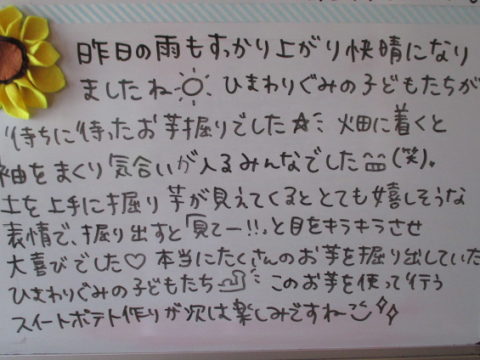 昨日の雨もすっかり上がり快晴になり
ましたね☀ ひまわりぐみの子どもたちが
待ちに待ったお芋掘りでした☆ 畑に着くと
袖をまくり気合いが入るみんなでした(笑)。
土を上手に掘り芋が見えてくるととても嬉しそうな
表情で、掘り出すと「見てー!!」と目をキラキラさせ
大喜びでした♡ 本当にたくさんのお芋を掘り出していた
ひまわりぐみの子どもたち このお芋を使って行う
スイートポテト作りが次は楽しみですね〜